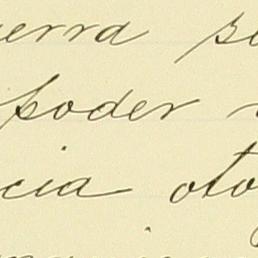 erra se
poder
cia oto